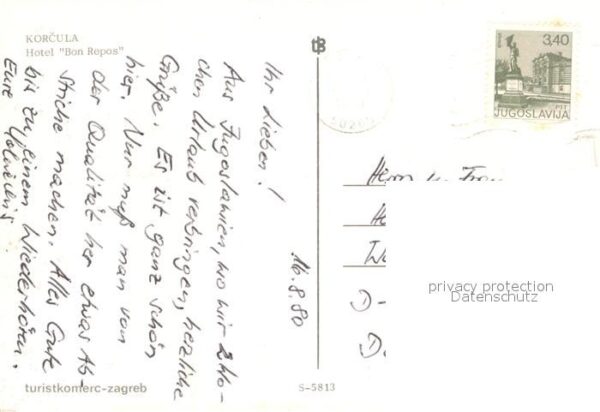 KORČULA
Hotel "Bon Repos"
Ihr Lieben!
Aus Jugoslawien, wo wir 2 Wo-
chen Urlaub verbringen, herzliche
Grüße. Es ist ganz schön
hier. Nur muß man von
der Qualität her etwas Ab-
striche machen. Alles Gute
bis zu einem Wiederhören.
Eure
16.8.80
turistkomerc-zagreb
S-5813
3,40
JUGOSLAVIJA
Herrn u. Frau
D-
D-
privacy protection
Datenschutz